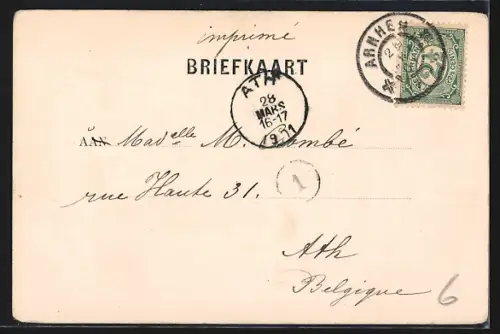 imprimé
BRIEFKAART
ARNHEM
2
ATH
28
MARS
16-17
1911
AAN Mad elle M.
rue Haute 31.
1
Ath
Belgique
6